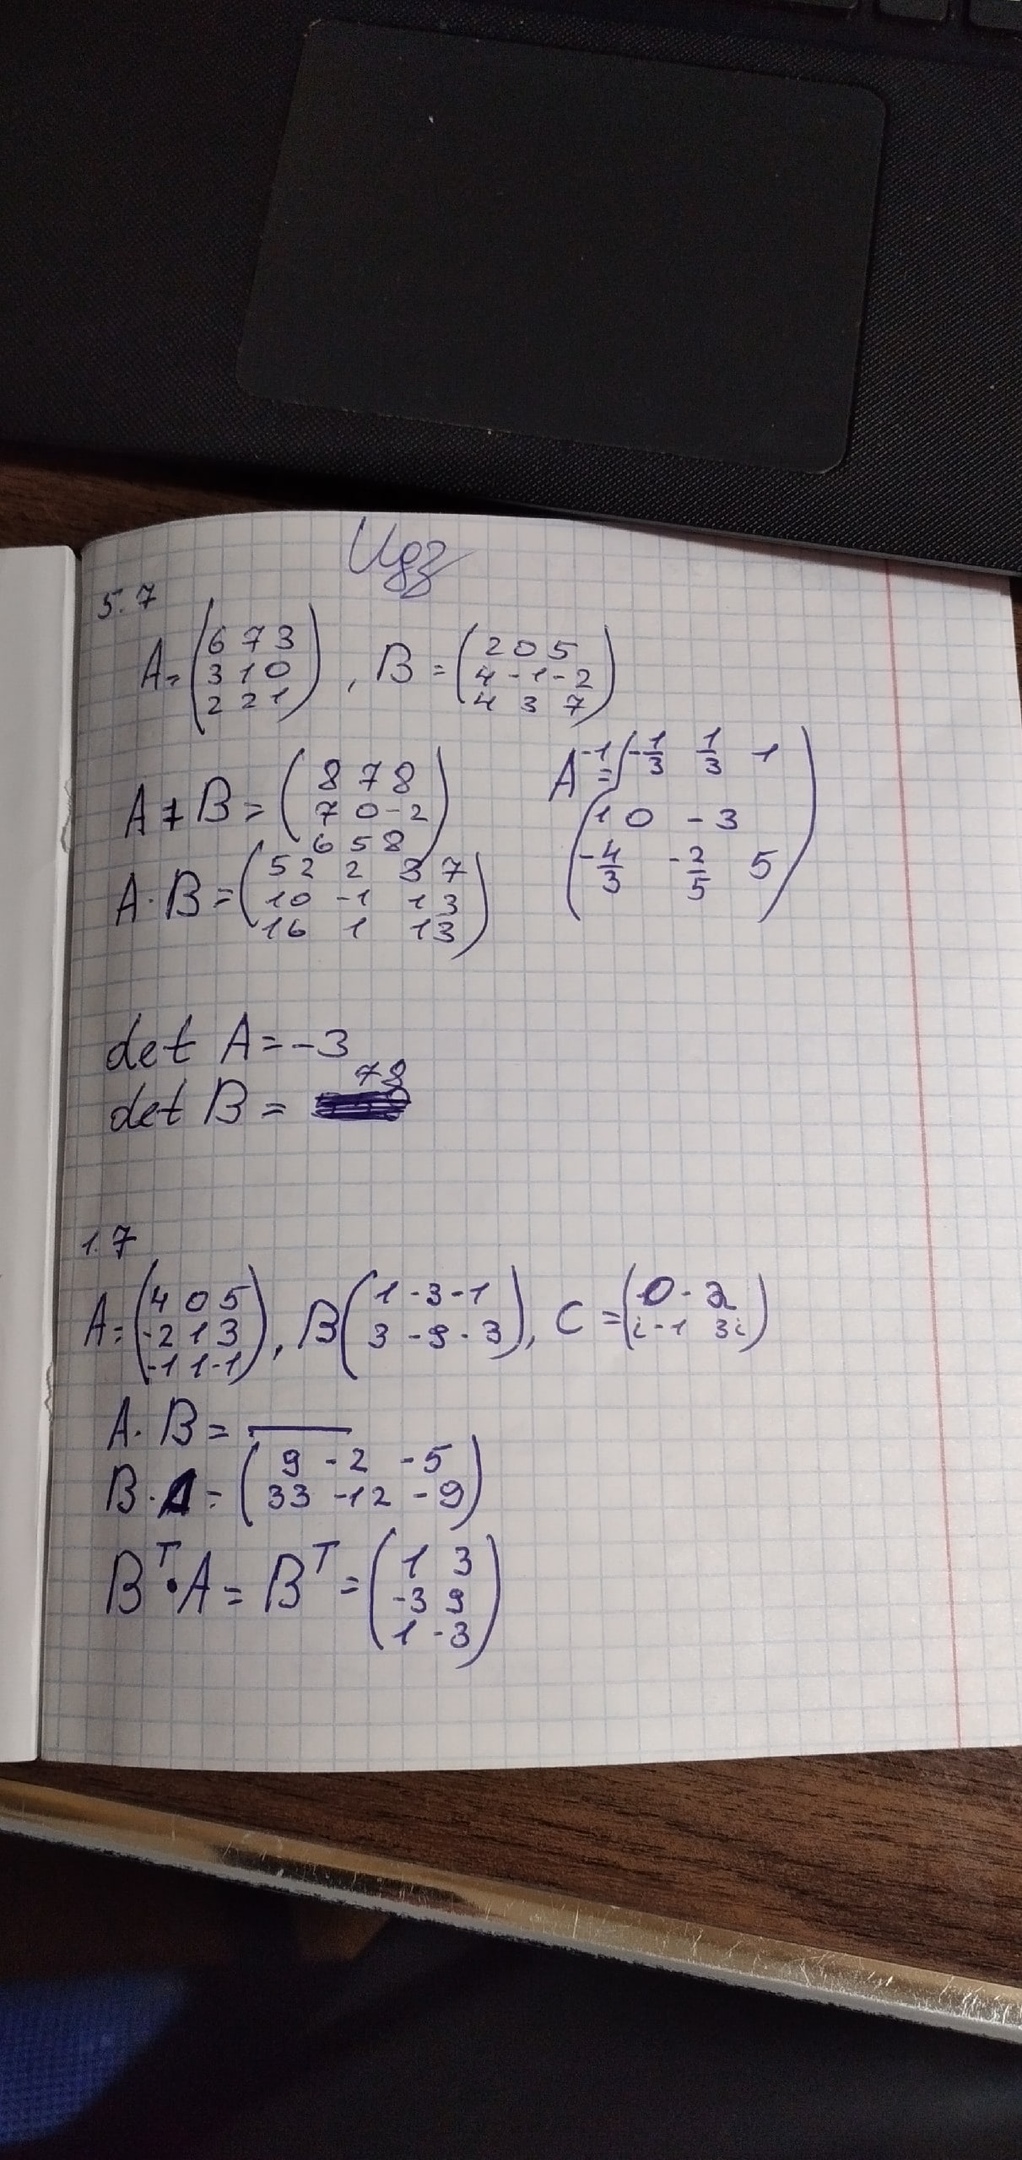 Идз
5.7
A= (6 7 3
3 1 0
2 2 1) , B = (2 0 5
4 -1 -2
4 3 7)
A+B= (8 7 8
7 0 -2
6 5 8)
A·B= (52 2 37
10 -1 13
16 1 13)
A⁻¹= (-1/3 1/3 1
1 0 -3
-4/3 -2/5 5)
det A = -3
det B = 78
1.7
A= (4 0 5
-2 1 3
-1 1 -1) , B (1 -3 -1
3 -9 -3) , C = (0 -2
i-1 3i)
A·B= —
B·A= (9 -2 -5
33 -12 -9)
Bᵀ·A = Bᵀ = (1 3
-3 9
1 -3)